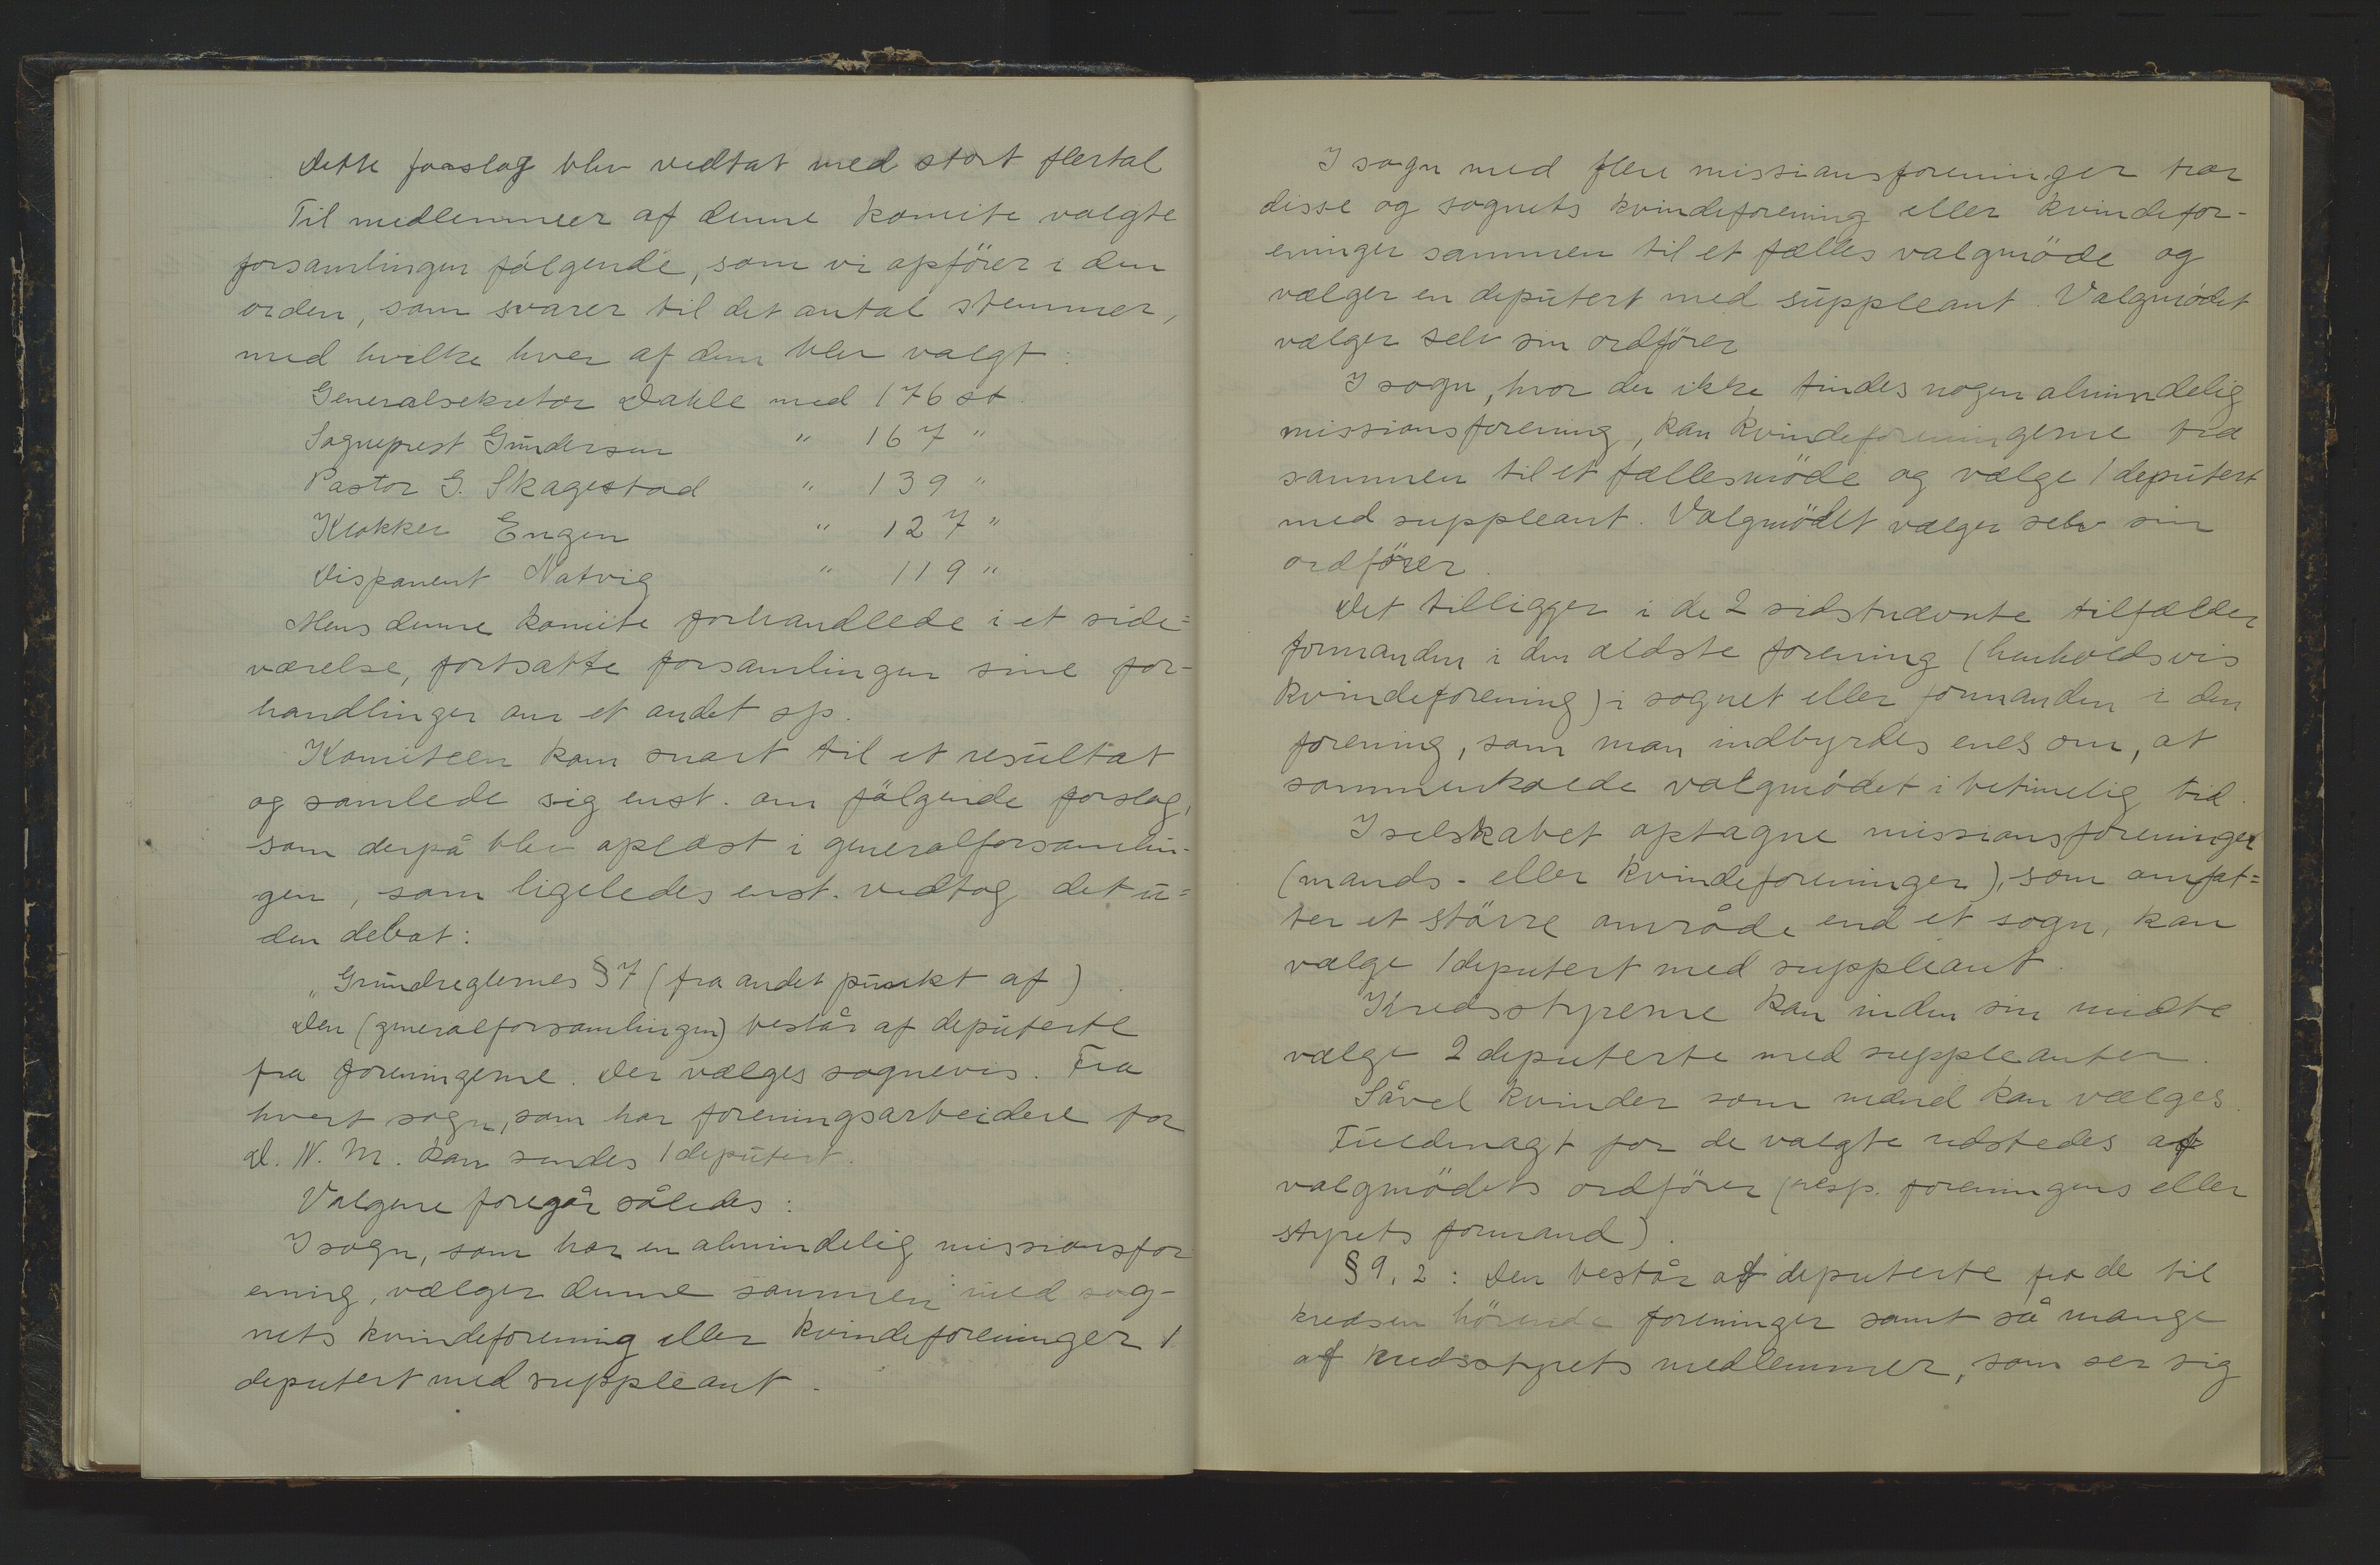 Dette forslag blev vedtat med stort flertal
Til medlemmeer af denne komite valgte
forsamlingen følgende, som vi opfører i den
orden, som svarer til det antal stemmer,
med hvilke hver af dem blev valgt:
Generalsekretær Dahle med 176 st.
Sogneprest Gundersen " 167 "
Pastor G. Skagestad " 139 "
Klokker Engen " 127 "
Disponent Natvig " 119 "
Mens denne komite forhandlede i et side=
værelse, fortsatte forsamlingen sine for-
handlinger om et andet sp.
Komiteen kom snart til et resultat
og samlede sig enst. om følgende forslag,
som derpå blev oplæst i generalforsamlin-
gen, som ligeledes enst. vedtog det u=
den debat:
„Grundreglernes § 7 (fra andet punkt af)
Den (generalforsamlingen) består af deputerte
fra foreningerne. Der vælges sognevis. Fra
hvert sogn, som har foreningsarbeidere for
D. N. M. kan sendes 1 deputert.
Valgene foregår således:
I sogn, som har en almindelig missionsfor
ening, vælger denne sammen med sog-
nets kvindeforening eller kvindeforeninger 1
deputert med suppleant.
I sogn med flere missionsforeninger træer
disse og sognets kvindeforening eller kvindefor-
eninger sammen til et fælles valgmøde og
vælger en deputert med suppleant. Valgmødet
vælger selv sin ordfører
I sogn, hvor der ikke findes nogen almindelig
missionsforening, kan kvindeforeningerne træ
sammen til et fællesmøde og vælge 1 deputert
med suppleant. Valgmødet vælger selv sin
ordfører.
Det tilligger i de 2 sidstnævnte tilfælder
formanden i den ældste forening (henholdsvis
kvindeforening) i sognet eller formanden i den
forening, som man indbyrdes enes om, at
sammenkalde valgmødet i betimelig tid.
I selskabet optagne missionsforeninger
(mands- eller kvindeforeninger), som omfat=
ter et større område end et sogn, kan
vælge 1 deputert med suppleant.
Kredsstyrerne kan inden sin midte
vælge 2 deputerte med suppleanter.
Såvel kvinder som mænd kan vælges.
Fuldmagt for de valgte udstedes af
valgmødets ordfører (resp. foreningens eller
styrets formand).
§ 9, 2: Den består af deputerte fra de til
kredsen hørende foreninger samt så mange
af kredsstyrets medlemmer, som ser sig